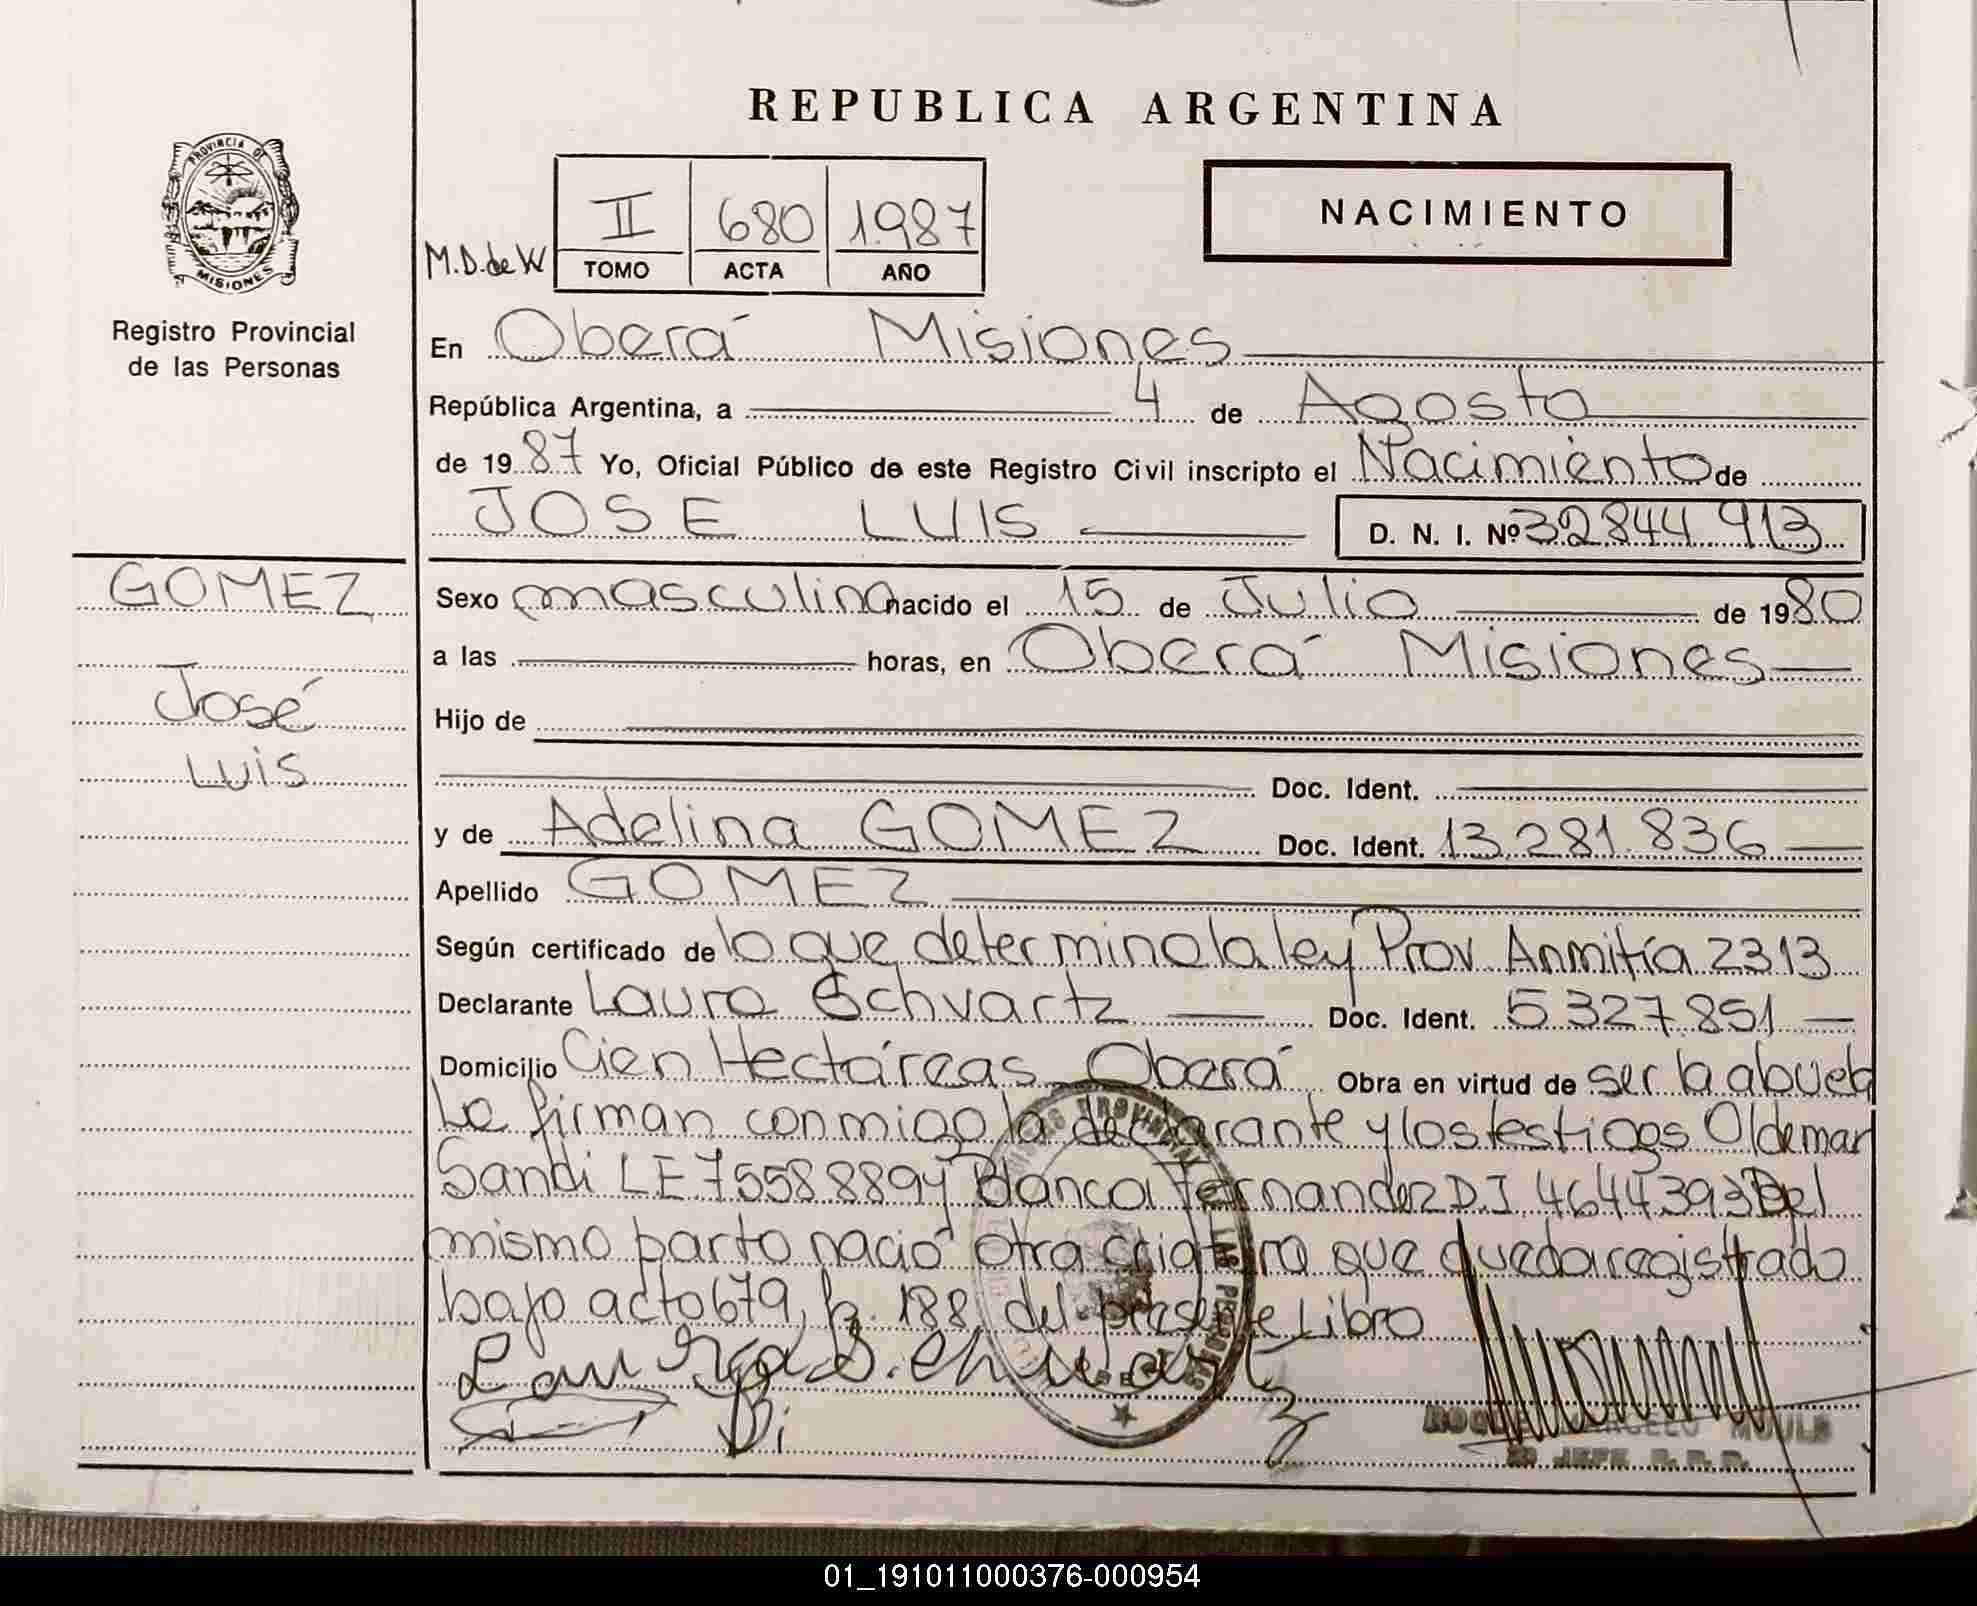 REPUBLICA ARGENTINA
PROVINCIA DE
MISIONES
Registro Provincial
de las Personas
II 680 1987
M.D. de W TOMO ACTA AÑO
NACIMIENTO
En Oberá Misiones
República Argentina, a 4 de Agosto
de 1987 Yo, Oficial Público de este Registro Civil inscripto el Nacimiento de
JOSE LUIS D. N. I. Nº 32844 913
GOMEZ
José
Luis
Sexo masculino nacido el 15 de Julio de 1980
a las horas, en Oberá Misiones
Hijo de
Doc. Ident.
y de Adelina GOMEZ Doc. Ident. 13.281.836
Apellido GOMEZ
Según certificado de lo que determina la ley Prov. Anmitía 2313
Declarante Laura Schvartz Doc. Ident. 5.327.851
Domicilio Cien Hectáreas Oberá Obra en virtud de ser la abuela
Le firman conmigo la declarante y los testigos Oldemar
Sandi LE 7558889 y Blanca Fernandez D.I. 4644393 Del
mismo parto nació otra criatura que queda registrado
bajo acta 679, fº. 188 del presente Libro
Laura Schvartz
2º JEFE R.P.P.
01_191011000376-000954